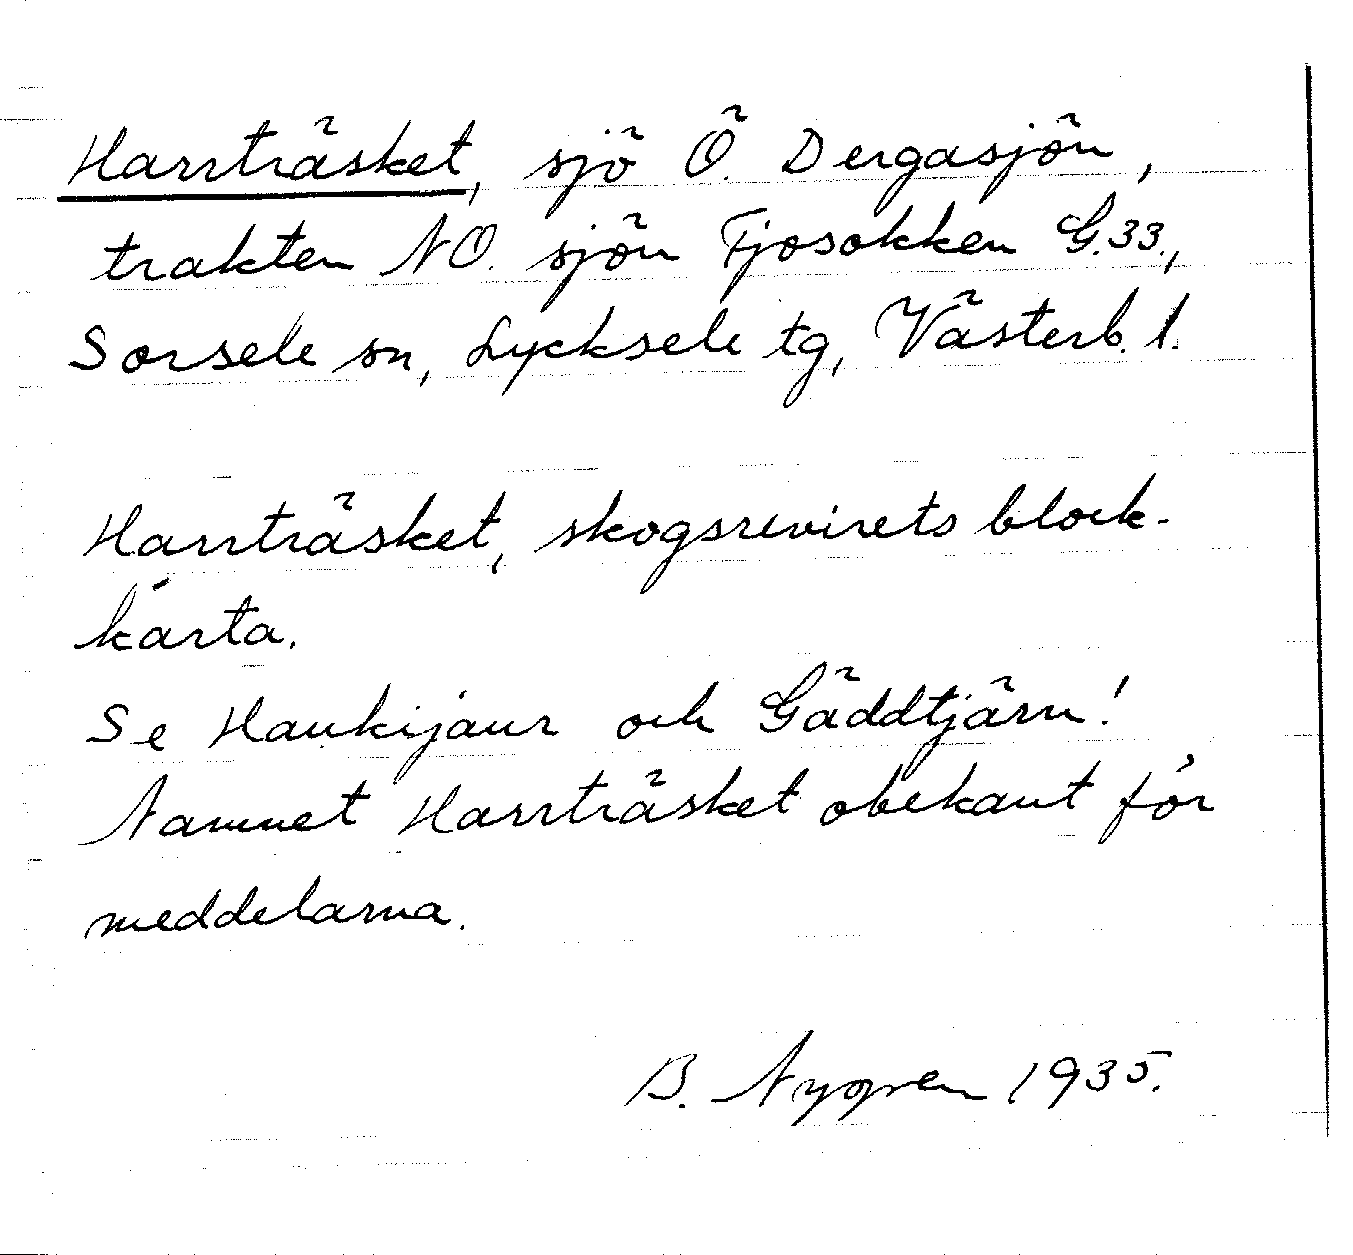 Harrträsket, sjö Ö. Dergasjön,
trakten NO. sjön Tjosokken G.33.,
Sorsele sn, Lycksele tg, Västerb. l.
Harrträsket, skogsrevirets block-
karta.
Se Haukijaur och Gäddtjärn!
Namnet Harrträsket obekant för
meddelarna.
B. Nygren 1935.